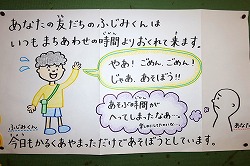 あなたの友だちのふじみくんは
いつもまちあわせの時間よりおくれて来ます。
やあ！ごめん、ごめん！
じゃあ、あそぼう！！
あそぶ時間が
へってしまったなあ…。
ふじみくん
あなた
今日もかるくあやまっただけであそぼうとしています。